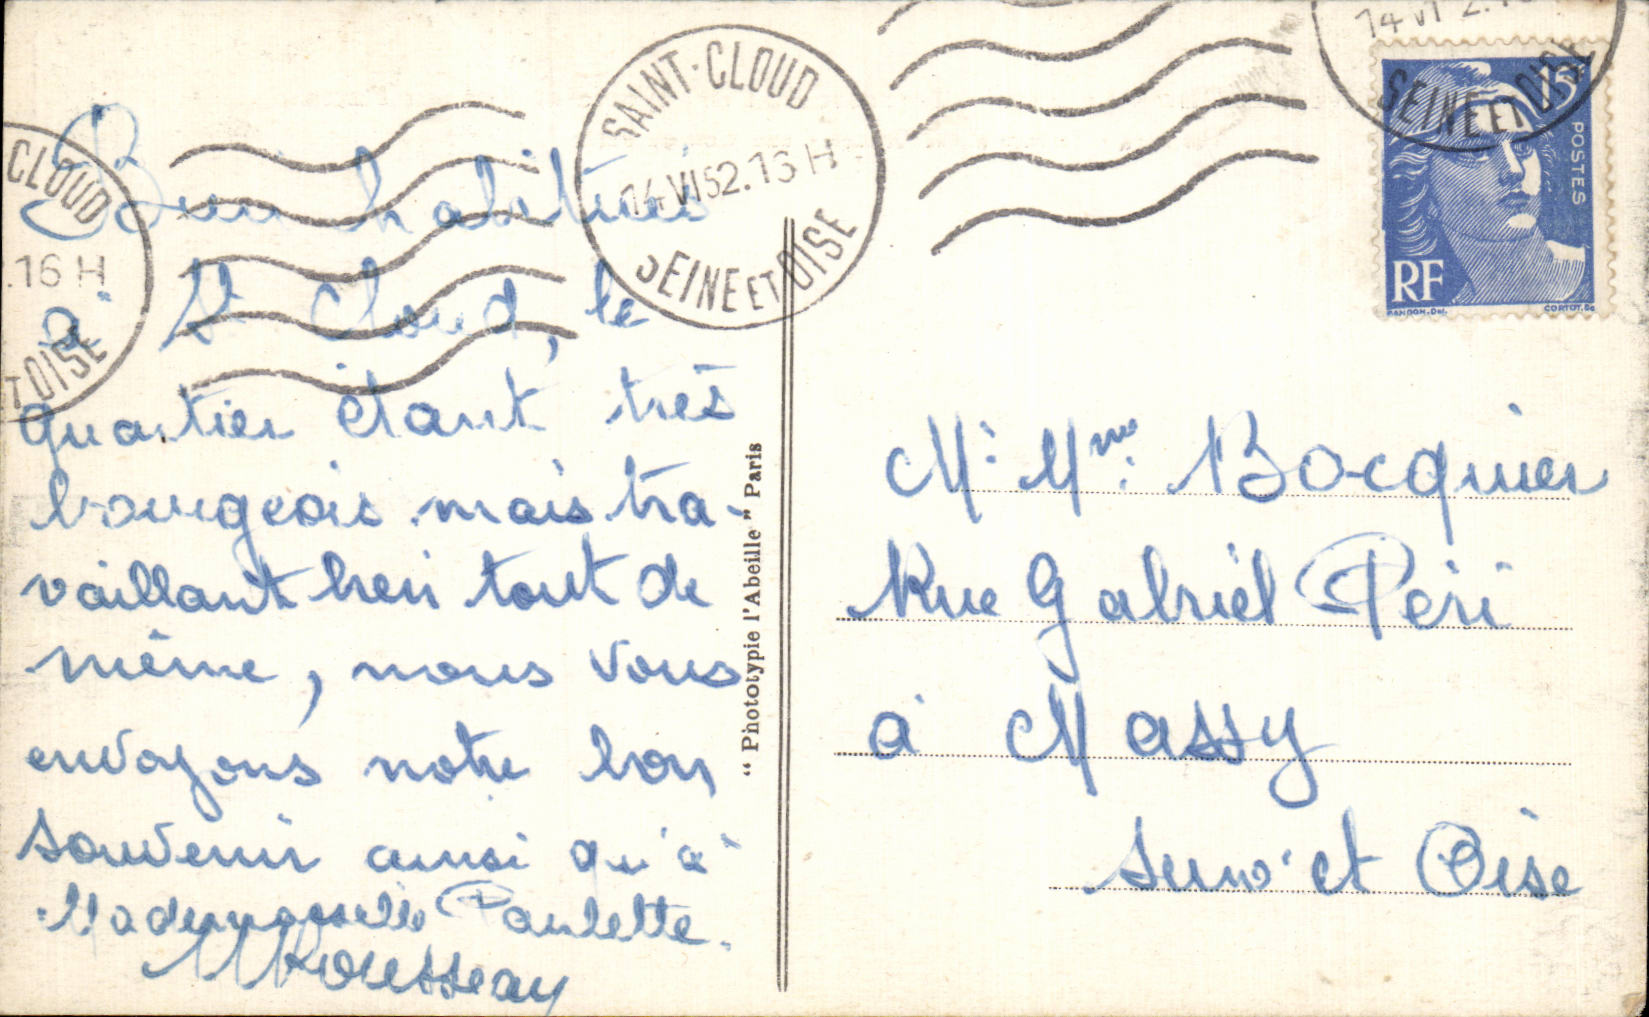 Bien habitués
à St Cloud, le
quartier étant très
bourgeois mais tra-
vaillant bien tout de
même, nous vous
envoyons notre bon
souvenir ainsi qu'à
Mademoiselle Paulette.
MRousseau
"Phototypie l'Abeille" Paris
CLOUD
.16 H
ET OISE
SAINT-CLOUD
14 VI 52.16 H
SEINE ET OISE
14 VI
SEINE ET OISE
15F
POSTES
RF
GANDON.Del.
CORTOT.Sc
Mr Mme Bocquier
Rue Gabriel Péri
à Massy
Seine et Oise